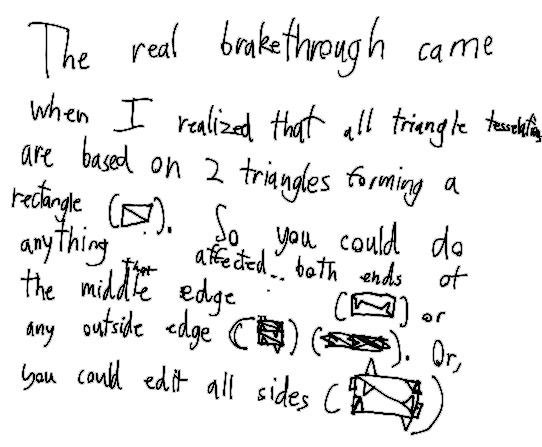 The real brakethrough came
when I realized that all triangle
are based on 2 triangles forming a
rectangle ( ). So you could do
anything that affected.. both ends of
the middle edge ( ) or
any outside edge ( ) ( ). Or,
you could edit all sides ( )